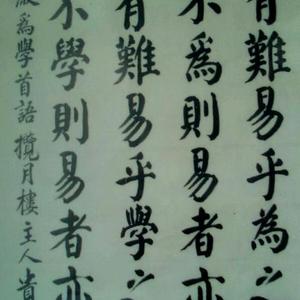 有難易乎為之
不為則易者亦
有難易乎學之
不學則易者亦
為學首語攬月樓主人貴